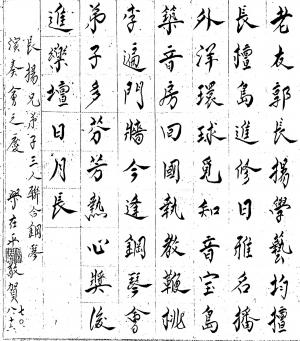 老友郭長揚學藝均擅
長擅島進修日雅名播
外洋環球覓知音宝島
築音房回國執教鞭桃
李遍門牆今逢鋼琴會
弟子多芬芳熱心獎後
進樂壇日月長
長揚兄弟子三人聯合鋼琴
演奏會之慶
學在平敬賀
七〇、